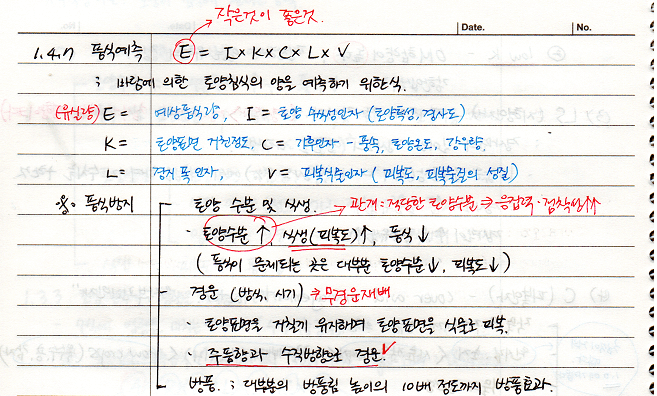 작은것이 좋은것.
Date. No.
1.4.7 풍식예측 E = I×K×C×L×V
; 바람에 의한 토양침식의 양을 예측하기 위한식.
(유실량) E = 예상풍식량, I = 토양 수식성인자 (토양특성, 경사도)
K = 토양표면 거친정도, C = 기후인자 - 풍속, 토양온도, 강우량,
L = 경지 폭 인자, V = 피복식물인자 (피복도, 피복물질의 성질)
※. 풍식방지 토양 수분 및 식생. 관개 : 적당한 토양수분 ⇒ 응집력·점착력↑↑
· 토양수분 ↑, 식생(피복도)↑, 풍식 ↓
( 풍식이 문제되는 곳은 대부분 토양수분↓, 피복도↓)
경운 (방식, 시기) ⇒ 무경운재배
· 토양표면을 거칠게 유지하며 토양표면을 식물로 피복.
· 주풍향과 수직방향으로 경운.✓
방풍. ; 대부분의 방풍림 높이의 10배 정도까지 방풍효과.